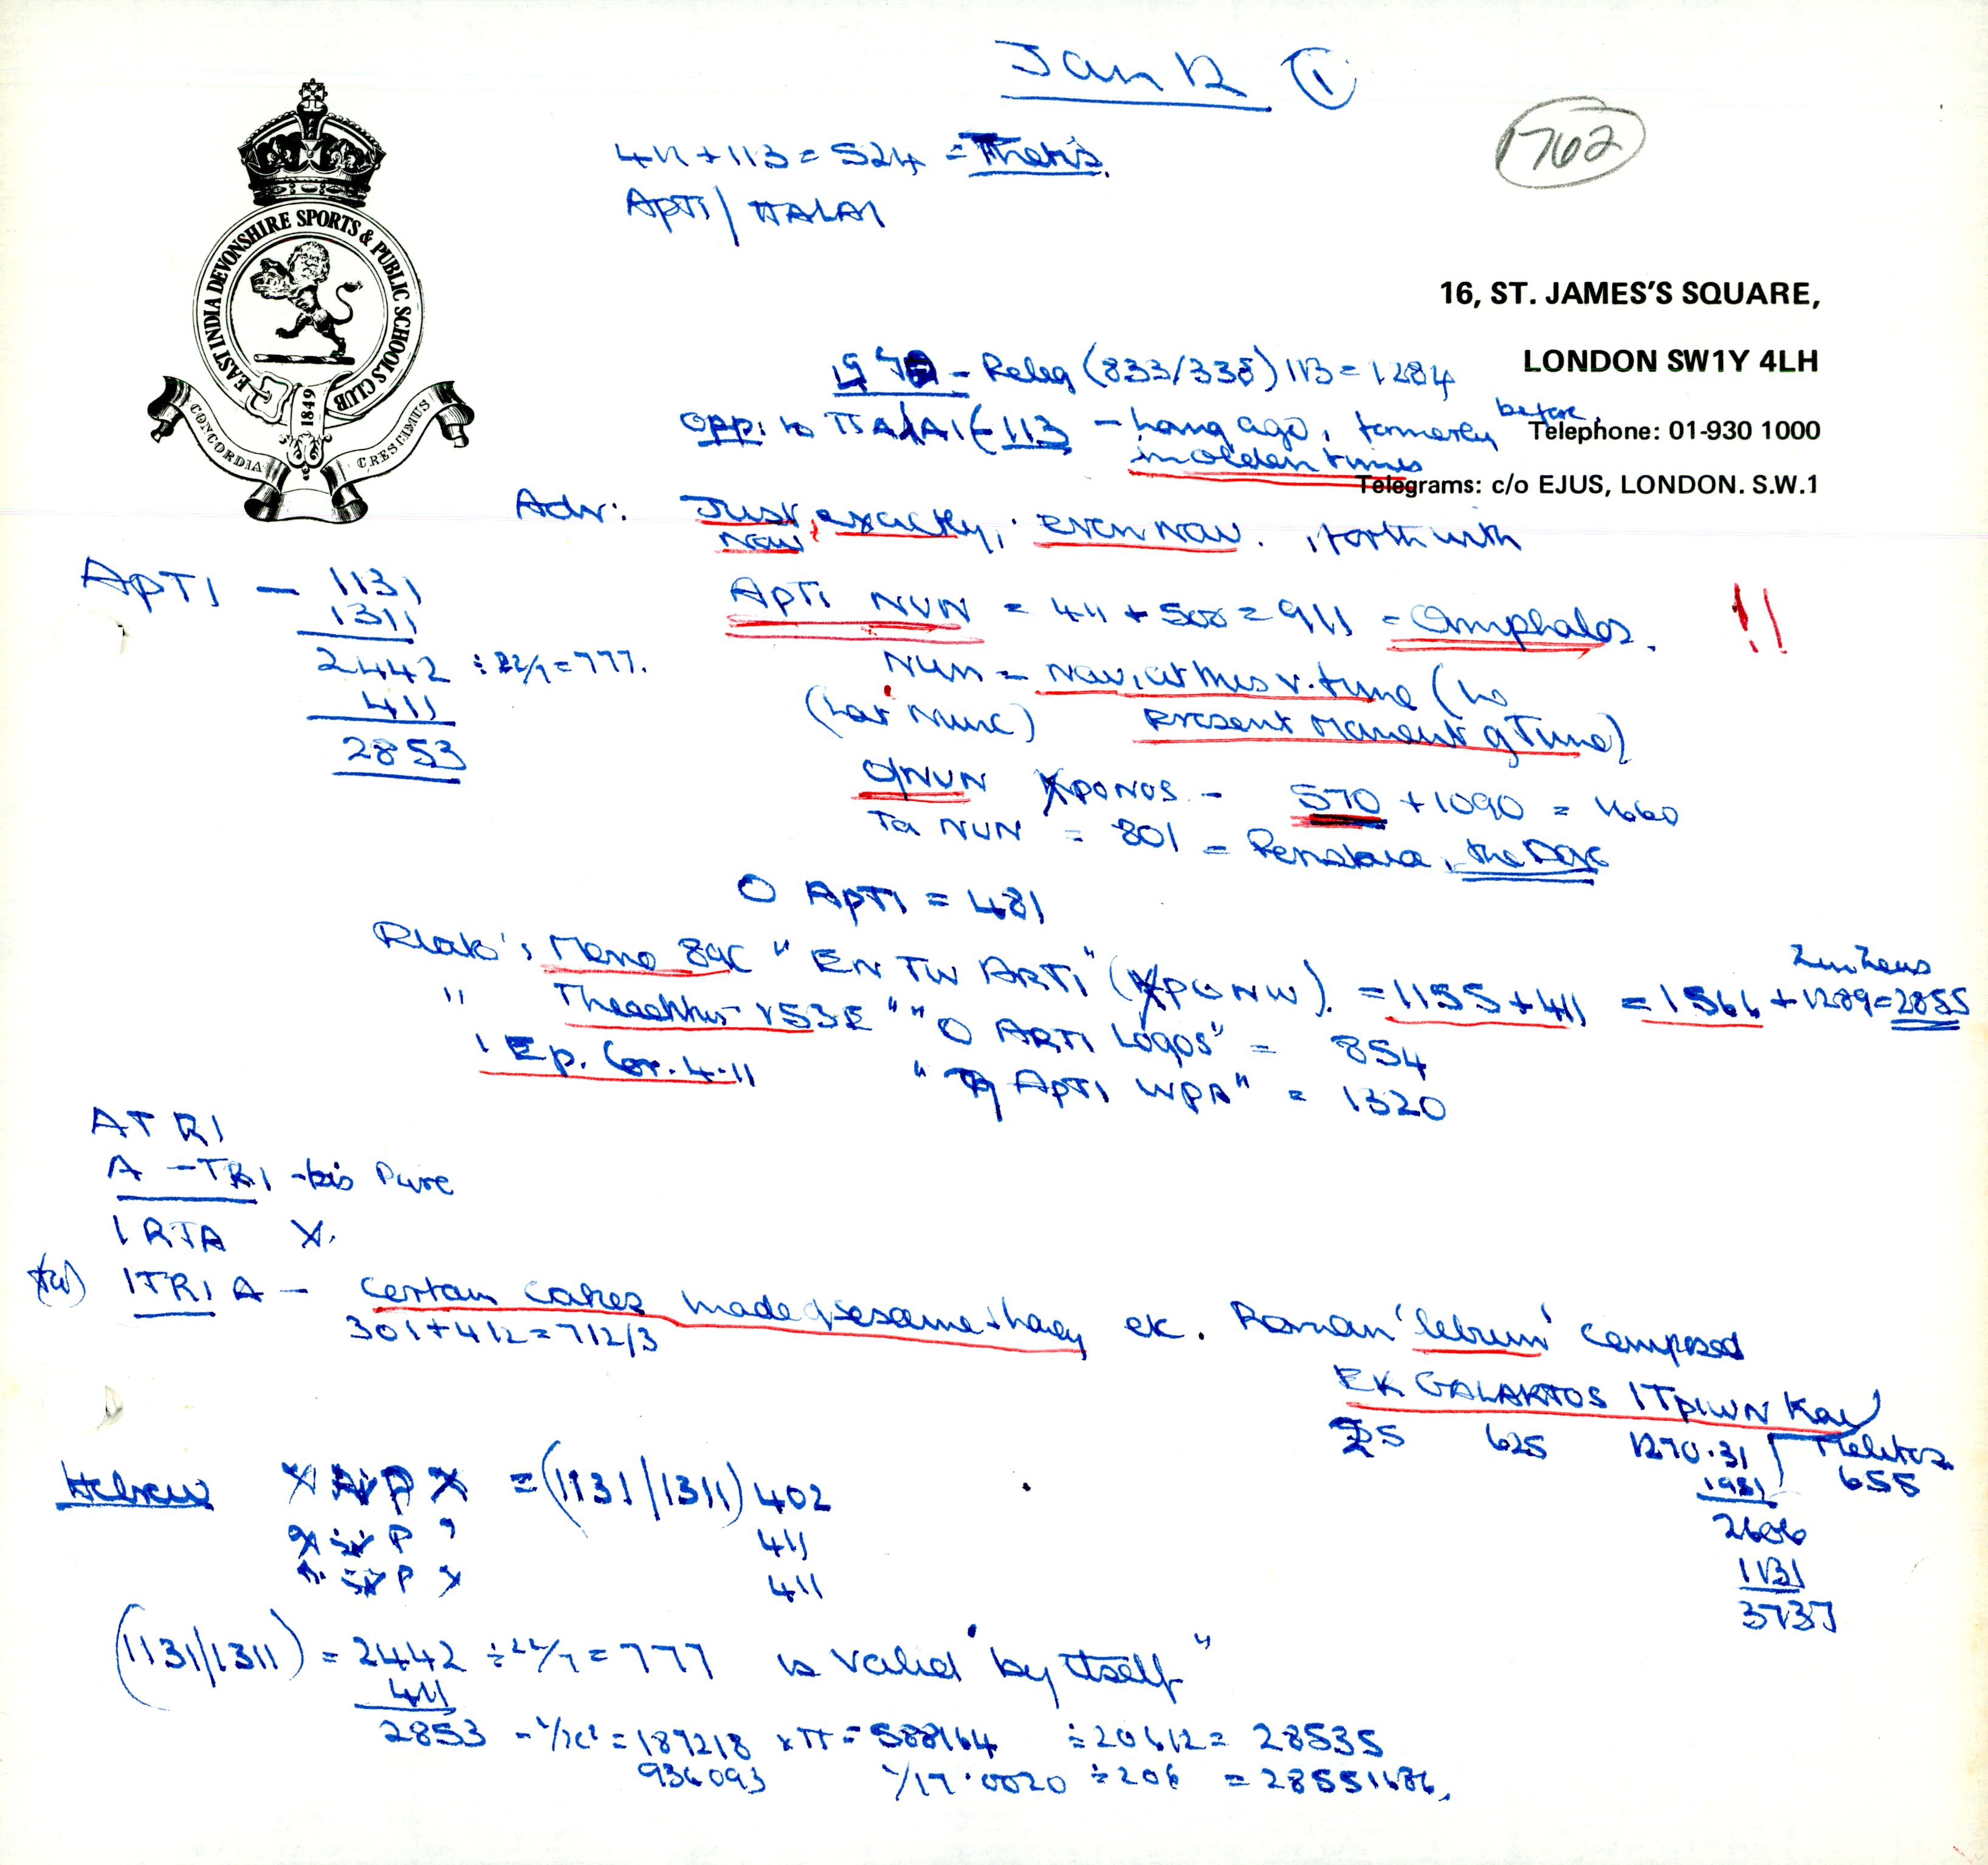 Jan 12 ①
1762
411 + 113 = 524 = Thetis.
ApTI / ΠALAI
EAST INDIA DEVONSHIRE SPORTS & PUBLIC SCHOOLS CLUB
1849
CONCORDIA CRESCIMUS
16, ST. JAMES'S SQUARE,
LONDON SW1Y 4LH
Telephone: 01-930 1000
Telegrams: c/o EJUS, LONDON. S.W.1
(833/338) 113 = 1284
opp: to ΠALAI - 113 - Long ago, formerly before,
in olden times
Adv: Just now, exactly, even now. forthwith
ApTI — 1131
1311
2442 ÷ 22/7 = 777.
411
2853
ApTI NUN = 411 + 500 = 911 = Omphalos. !!
NUN = Now, at this v. time (
(Lat Nunc) present Moment of Time)
O NUN XPONOS - 570 + 1090 = 1660
Ta NUN = 801 = Peristera, the Dove
O ApTI = 481
Plato's Meno 89C "EN TW ARTI" (XPONW). = 1155 + 411 = 1566 + 1289 = 2855
" Theaetetus 153E "O ARTI LOGOS" = 854
1 Ep. Cor. 4.11 " ApTI WPA" = 1320
ATRI
A - TRI - Pure
IRTA X.
ITRIA - Certain cakes made of sesame + honey etc. Roman 'libum' composed
301 + 412 = 712/3
EK GALAKTOS ITpIWN Kai
25 625 1270.31 Melitos
1951 655
2606
1131
3737
Hebrew = (1131/1311) 402
411
411
(1131/1311) = 2442 ÷ 22/7 = 777 is valid "by itself"
411
2853 - 1/x² = 187218 x π = 588164 ÷ 20612 = 28535
936093 1/17.0020 ÷ 206 = 28551686.